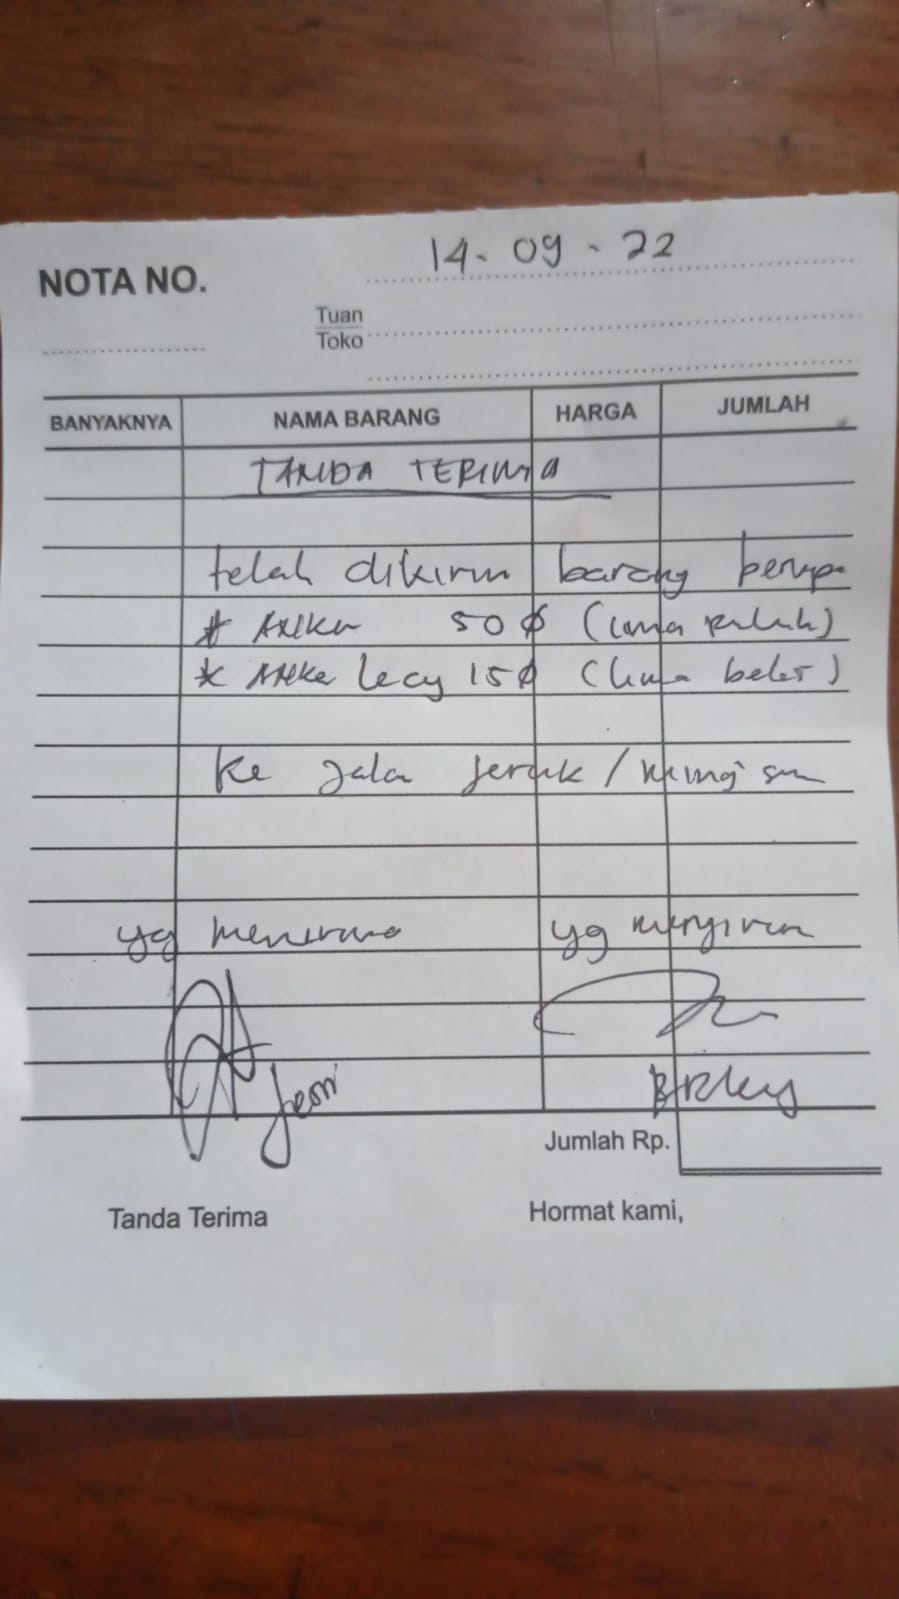 14-09-22
NOTA NO.
Tuan
Toko
BANYAKNYA NAMA BARANG HARGA JUMLAH
TANDA TERIMA
telah dikirim barang berupa
* 50 (lima puluh)
* 15 (lima belas)
ke jalan jeruk /
yg menerima yg mengirim
Jumlah Rp.
Tanda Terima Hormat kami,